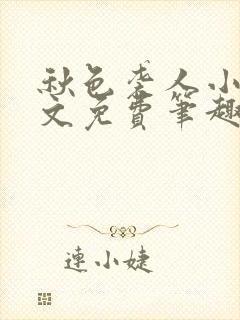 秋色袭人小
文免费笔趣
连小婕